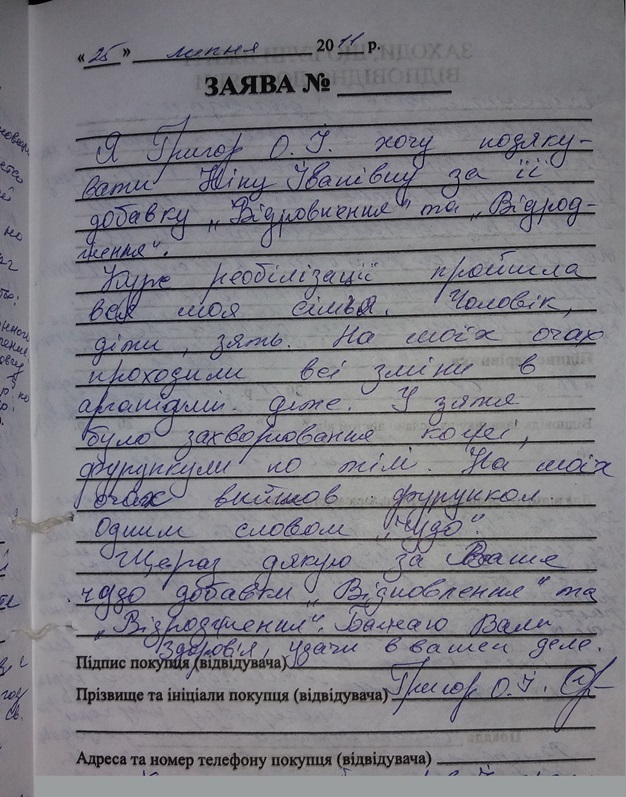 « 25 » липня 2011 р.
ЗАЯВА №
Я Григор О. І. хочу подяку-
вати Ніну Іванівну за її
добавку „Відровнення" та „Відрод-
ження".
Курс реобілізації пройшла
вся моя сімья. Чоловік,
діти, зять. На моїх очах
проходили всі зміни в
діже. У зятя
було захворювання кожі,
фурункули по тілі. На моїх
очах вийшов фурункол
Одним словом „Чудо".
Щераз дякую за Ваше
чудо добавки „Відновлення" та
„Відродження". Бажаю Вам
Здоров'я, удачи в вашем деле.
Підпис покупця (відвідувача)
Прізвище та ініціали покупця (відвідувача) Григор О. І.
Адреса та номер телефону покупця (відвідувача)